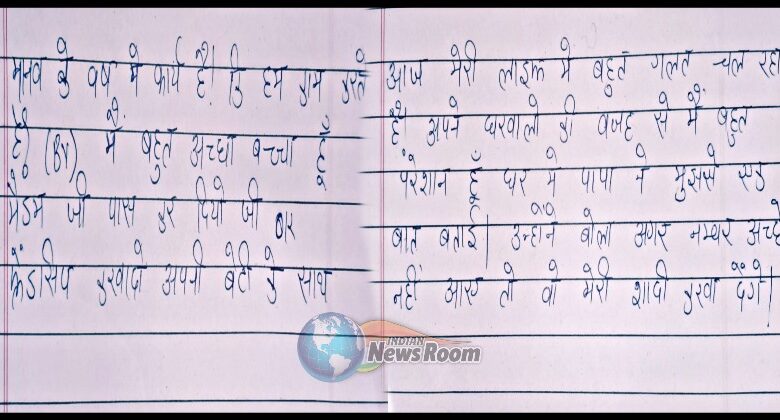 मनव के वष मे कार्य है। कि हम काम करते
है। (Br) में बहुत अच्छा बच्चा हूँ
मैडम जी पास कर दियो जी OR
फ्रेंडसिप करवादो अपनी बेटी के साथ
आज मेरी लाइफ मे बहुत गलत चल रहा
है। अपने घरवालो की वजह से में बहुत
परेशान हूँ घर मे पापा ने मुझसे एक
बात बताई। उन्होंने बोला अगर नम्बर अच्छे
नहीं आए तो वो मेरी शादी करवा देंगे।
INDIAN
NewsRoom